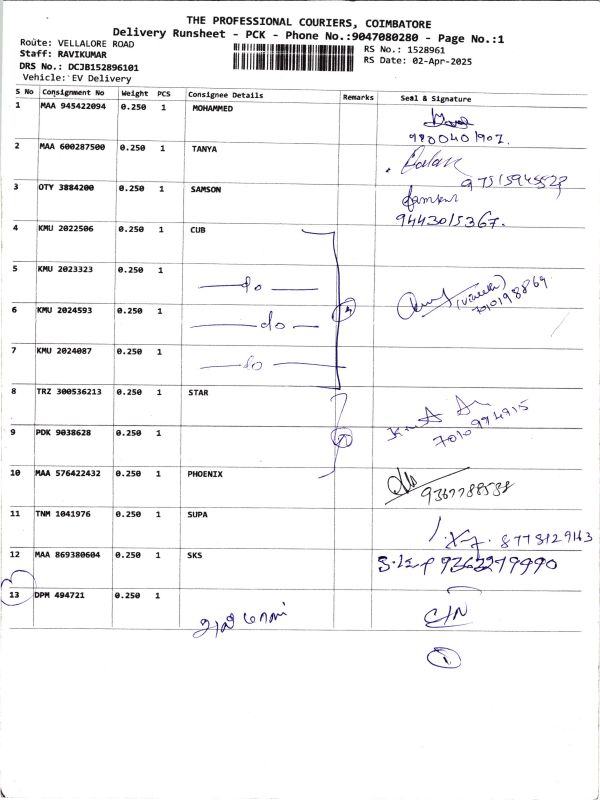 THE PROFESSIONAL COURIERS, COIMBATORE
Delivery Runsheet - PCK - Phone No.:9047080280 - Page No.:1
Route: VELLALORE ROAD
Staff: RAVIKUMAR
DRS No.: DCJB152896101
Vehicle: EV Delivery
RS No.: 1528961
RS Date: 02-Apr-2025
S No Consignment No Weight PCS Consignee Details Remarks Seal & Signature
1 MAA 945422094 0.250 1 MOHAMMED
9800401907.
2 MAA 600287500 0.250 1 TANYA
3 OTY 3884200 0.250 1 SAMSON
9443015367.
4 KMU 2022506 0.250 1 CUB
5 KMU 2023323 0.250 1
do
6 KMU 2024593 0.250 1 4
do
7 KMU 2024087 0.250 1
do
8 TRZ 300536213 0.250 1 STAR
7010974915
9 PDK 9038628 0.250 1
10 MAA 576422432 0.250 1 PHOENIX
9367788538
11 TNM 1041976 0.250 1 SUPA
8778129143
12 MAA 869380604 0.250 1 SKS
9362279990
13 DPM 494721 0.250 1
C/N
1